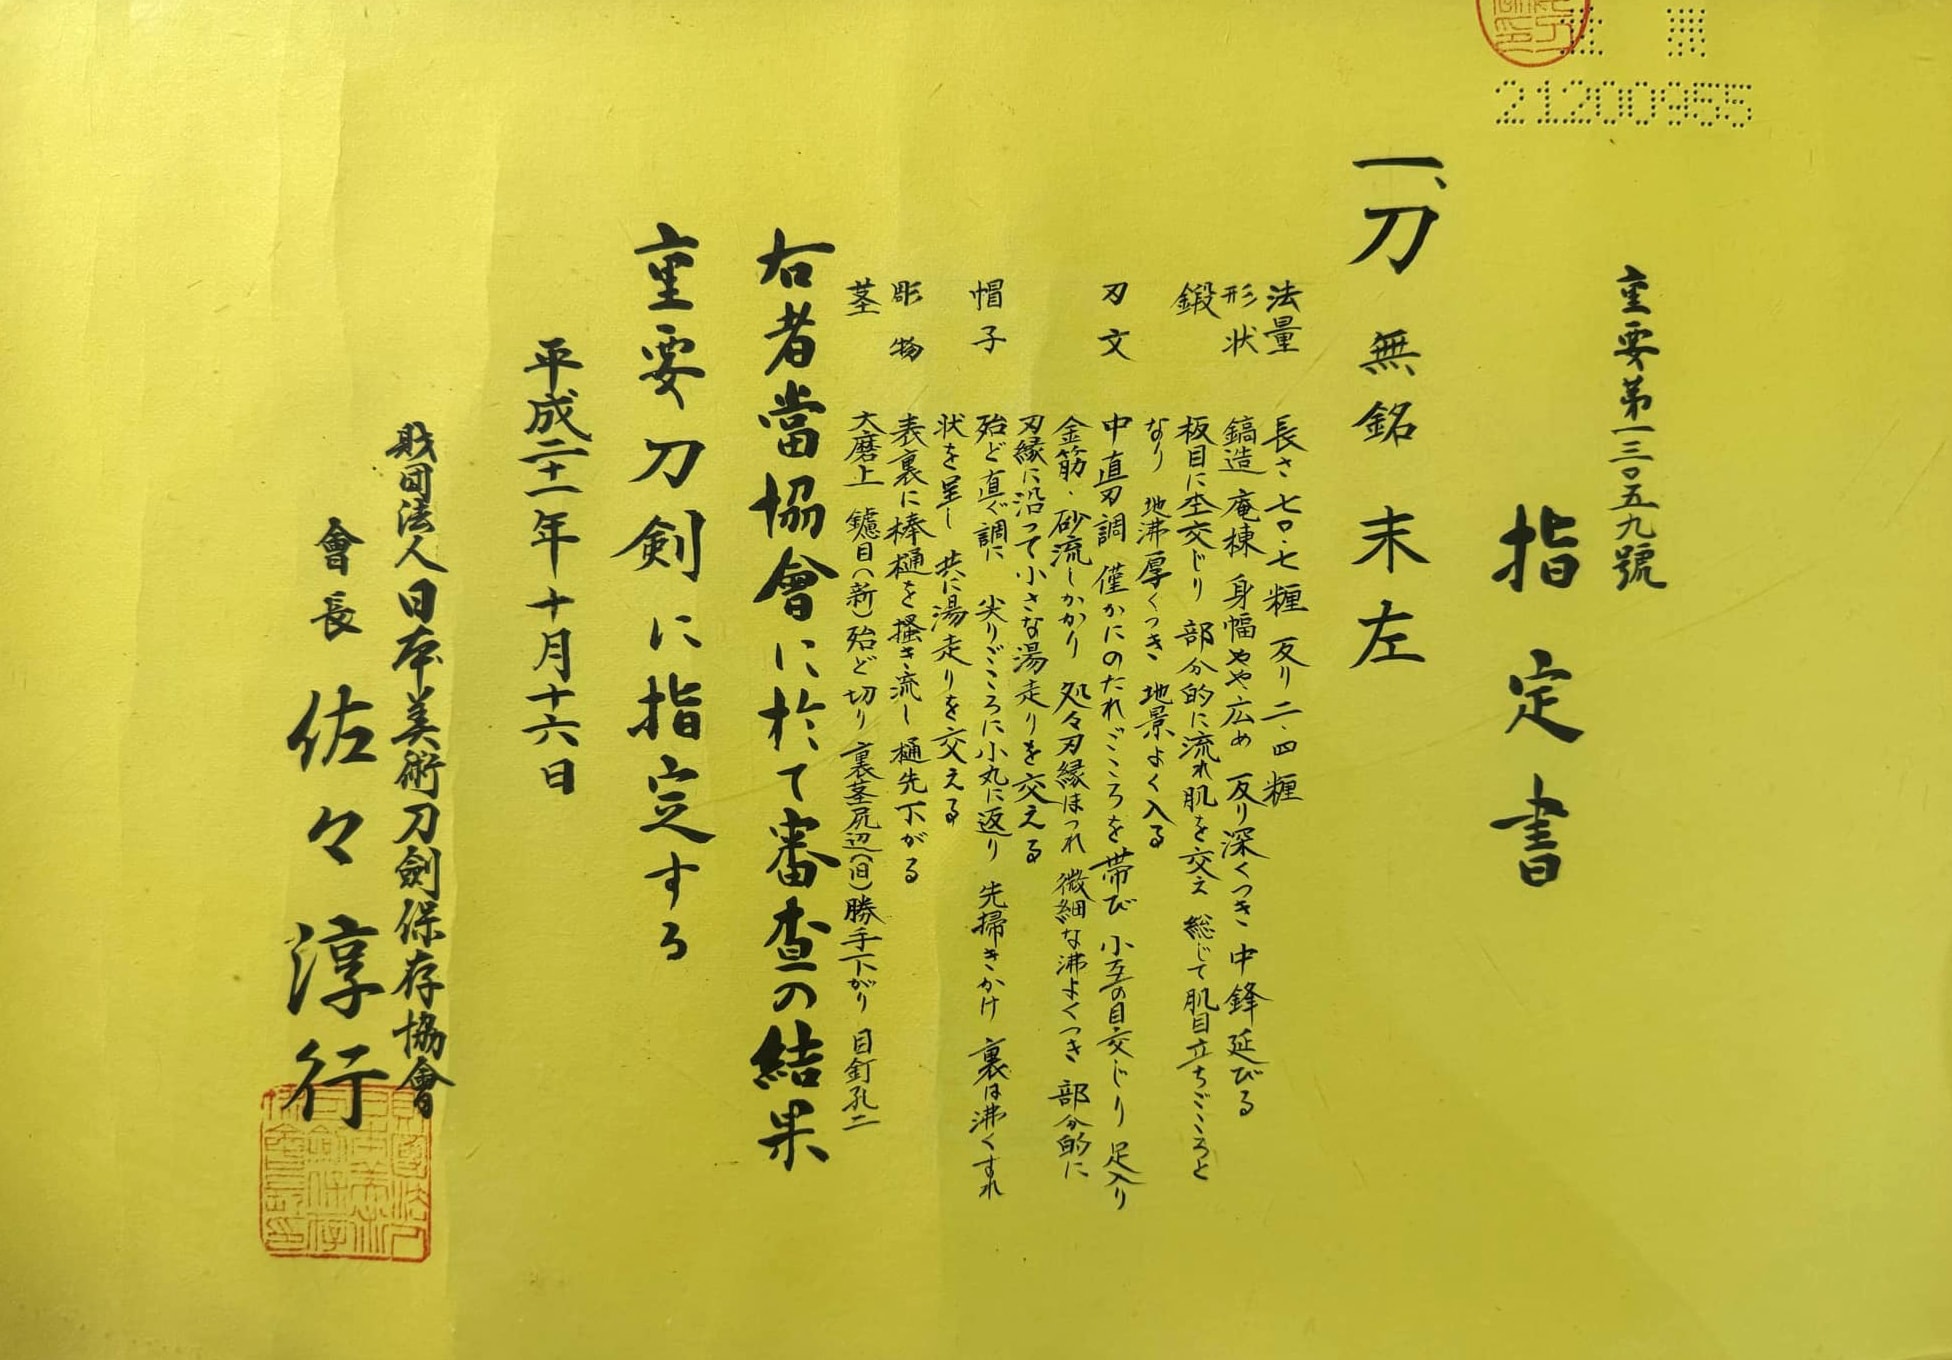 21200955
重要第一三〇五九號
指定書
一、刀 無銘 末左
法量 長さ 七〇・七糎 反り 二・四糎
形状 鎬造 庵棟 身幅やや広め 反り深くつき 中鋒延びる
鍛 板目に杢交じり 部分的に流れ肌を交え 総じて肌目立ちごころと
なり 地沸厚くつき 地景よく入る
刃文 中直刃調 僅かにのたれごころを帯び 小互の目交じり 足入り
金筋・砂流しかかり 処々刃縁ほつれ 微細な沸よくつき 部分的に
刃縁に沿って小さな湯走りを交える
帽子 殆ど直ぐ調に 尖りごころに小丸に返り 先掃きかけ 裏は沸くずれ
状を呈し 共に湯走りを交える
彫物 表裏に棒樋を掻き流し 樋先下がる
茎 大磨上 鑢目(新)殆ど切り 裏茎尻辺(旧)勝手下がり 目釘孔二
右者當協會に於て審査の結果
重要刀剣に指定する
平成二十一年十月十六日
財団法人日本美術刀劍保存協會
會長 佐々淳行